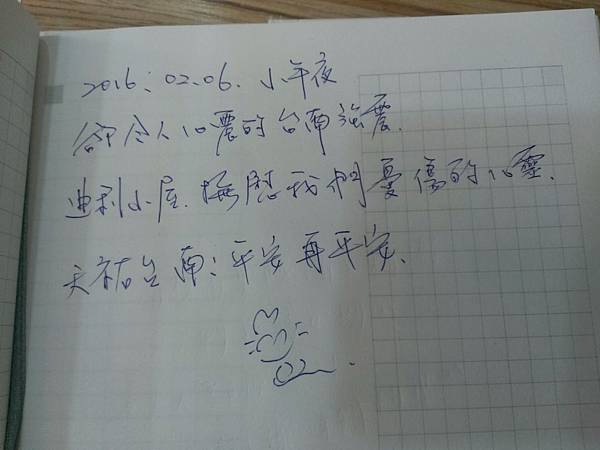 2016.02.06. 小年夜
卻令人心震的台南強震.
迪利小屋.撫慰我們憂傷的心靈.
天祐台南:平安再平安.